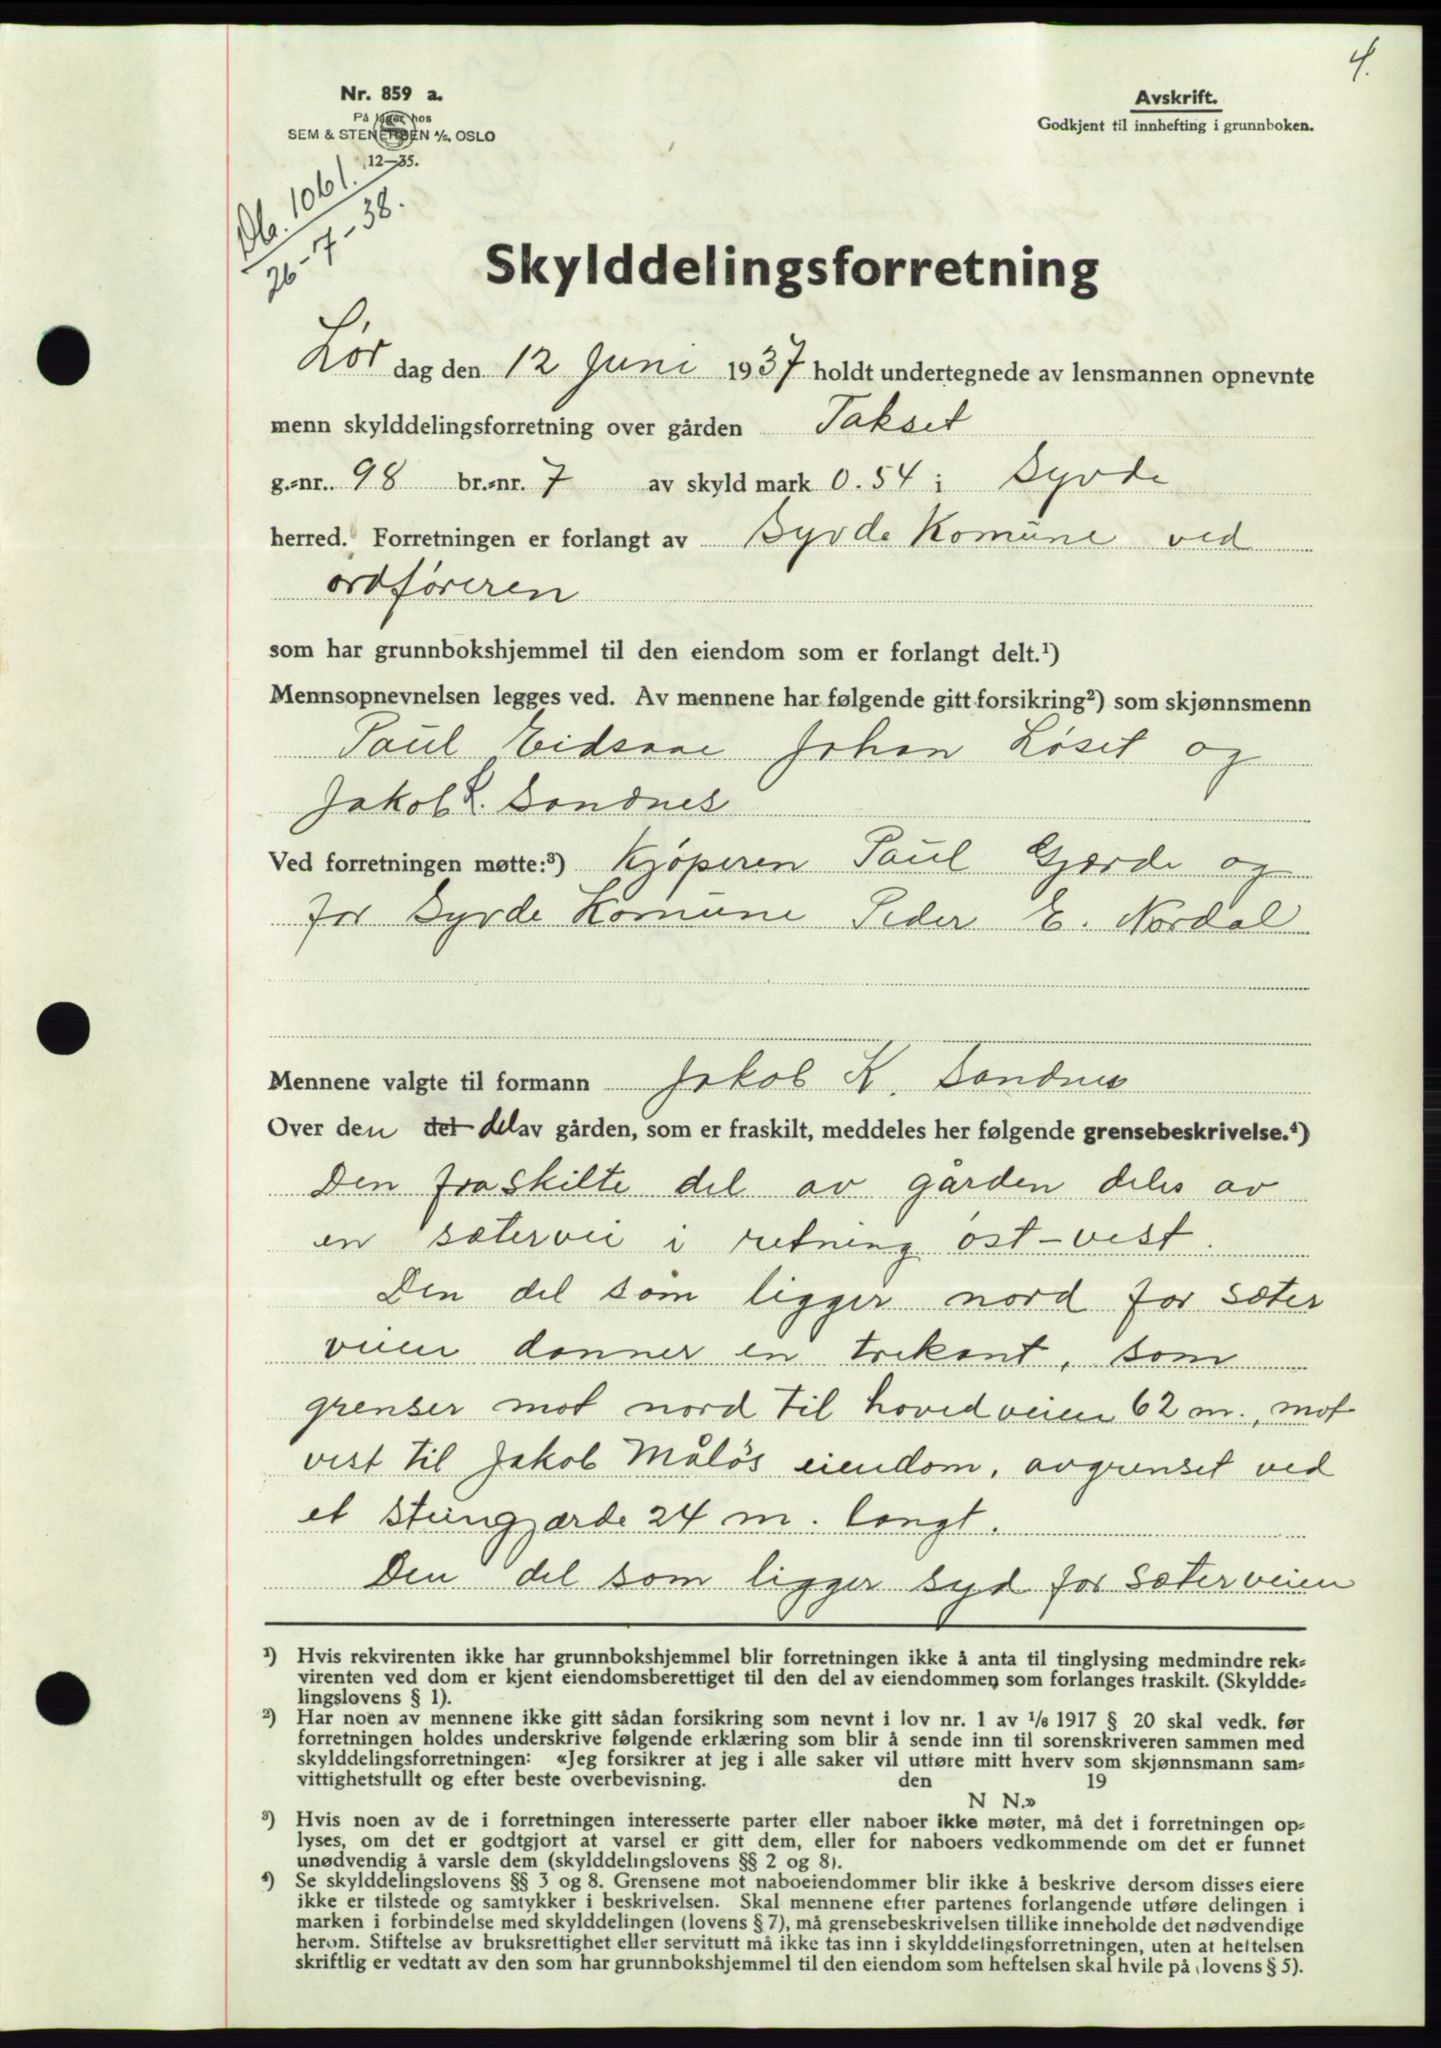 4.
Nr. 859 a.
På lager hos
SEM & STENERSEN A/S, OSLO
12-35.
Avskrift.
Godkjent til innhefting i grunnboken.
Db. 1061.
26-7-38.
Skylddelingsforretning
Lør dag den 12 Juni 1937 holdt undertegnede av lensmannen opnevnte
menn skylddelingsforretning over gården Takset
g.-nr. 98 br.-nr. 7 av skyld mark 0.54 i Syvde
herred. Forretningen er forlangt av Syvde Komune ved
ordføreren
som har grunnbokshjemmel til den eiendom som er forlangt delt.¹)
Mennsopnevnelsen legges ved. Av mennene har følgende gitt forsikring²) som skjønnsmenn
Paul Eidsaae Johan Løset og
Jakob K. Sandnes
Ved forretningen møtte:³) Kjøperen Paul Gjærde og
for Syvde Komune Peder E. Nordal
Mennene valgte til formann Jakob K. Sandnes
Over den det del av gården, som er fraskilt, meddeles her følgende grensebeskrivelse.⁴)
Den fraskilte del av gården deles av
en sætervei i retning øst-vest.
Den del som ligger nord for sæter
veien danner en trekant, som
grenser mot nord til hovedveien 62 m., mot
vest til Jakob Måløs eiendom, avgrenset ved
et steingjærde 24 m. langt.
Den del som ligger syd for sæterveien
¹) Hvis rekvirenten ikke har grunnbokshjemmel blir forretningen ikke å anta til tinglysing medmindre rek-
virenten ved dom er kjent eiendomsberettiget til den del av eiendommen som forlanges fraskilt. (Skyldde-
lingslovens § 1).
²) Har noen av mennene ikke gitt sådan forsikring som nevnt i lov nr. 1 av 1/6 1917 § 20 skal vedk. før
forretningen holdes underskrive følgende erklæring som blir å sende inn til sorenskriveren sammen med
skylddelingsforretningen: «Jeg forsikrer at jeg i alle saker vil utføre mitt hverv som skjønnsmann sam-
vittighetsfullt og efter beste overbevisning. den 19
N N.»
³) Hvis noen av de i forretningen interesserte parter eller naboer ikke møter, må det i forretningen op-
lyses, om det er godtgjort at varsel er gitt dem, eller for naboers vedkommende om det er funnet
unødvendig å varsle dem (skylddelingslovens §§ 2 og 8).
⁴) Se skylddelingslovens §§ 3 og 8. Grensene mot naboeiendommer blir ikke å beskrive dersom disses eiere
ikke er tilstede og samtykker i beskrivelsen. Skal mennene efter partenes forlangende utføre delingen i
marken i forbindelse med skylddelingen (lovens § 7), må grensebeskrivelsen tillike inneholde det nødvendige
herom. Stiftelse av bruksrettighet eller servitutt må ikke tas inn i skylddelingsforretningen, uten at heftelsen
skriftlig er vedtatt av den som har grunnbokshjemmel til den eiendom som heftelsen skal hvile på (lovens § 5).